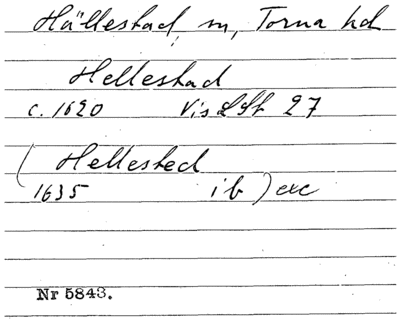 Hällestad, sn, Torna hd
Hellestad
c. 1620 VisLSt 27
( Hellested
1635 ib ) exc
Nr 5843.